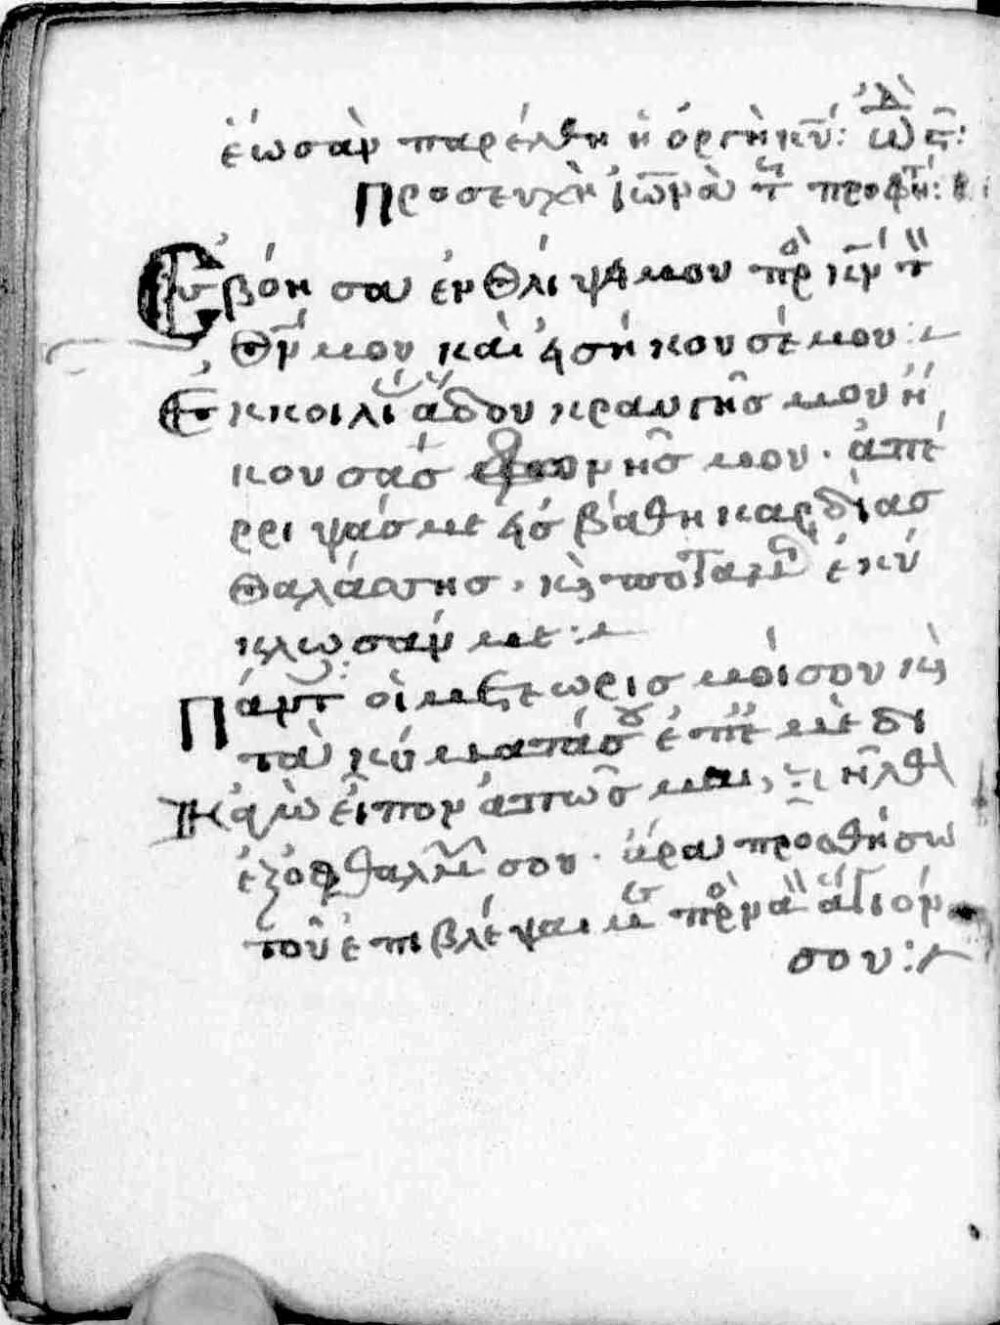 ἕως ἂν παρέλθη ἡ ὀργὴ κυ: ὠδ ϛ:
Προσευχὴ ἰωνᾶ τ προφη:
Ἐβόησα ἐν θλίψει μου πρ κν τ
θν μου καὶ εἰσήκουσέ μου:
Ἐκ κοιλί ἅδου κραυγῆς μου ἤ
κουσας φωνῆς μου. ἀπέ
ρριψάς με εἰς βάθη καρδίας
θαλάσσης. κ ποταμ ἐκύ
κλωσάν με:
Πάντ οἱ μετεωρισμοί σου κ
τὰ κύματά σ ἐπ ἐμὲ δι
Κἀγὼ εἶπον ἀπῶσμαι ἐξ
ἐξ ὀφθαλμ σου. ἆρα προσθήσω
τοῦ ἐπιβλέψαι μ πρ να ἅγιόν
σου: